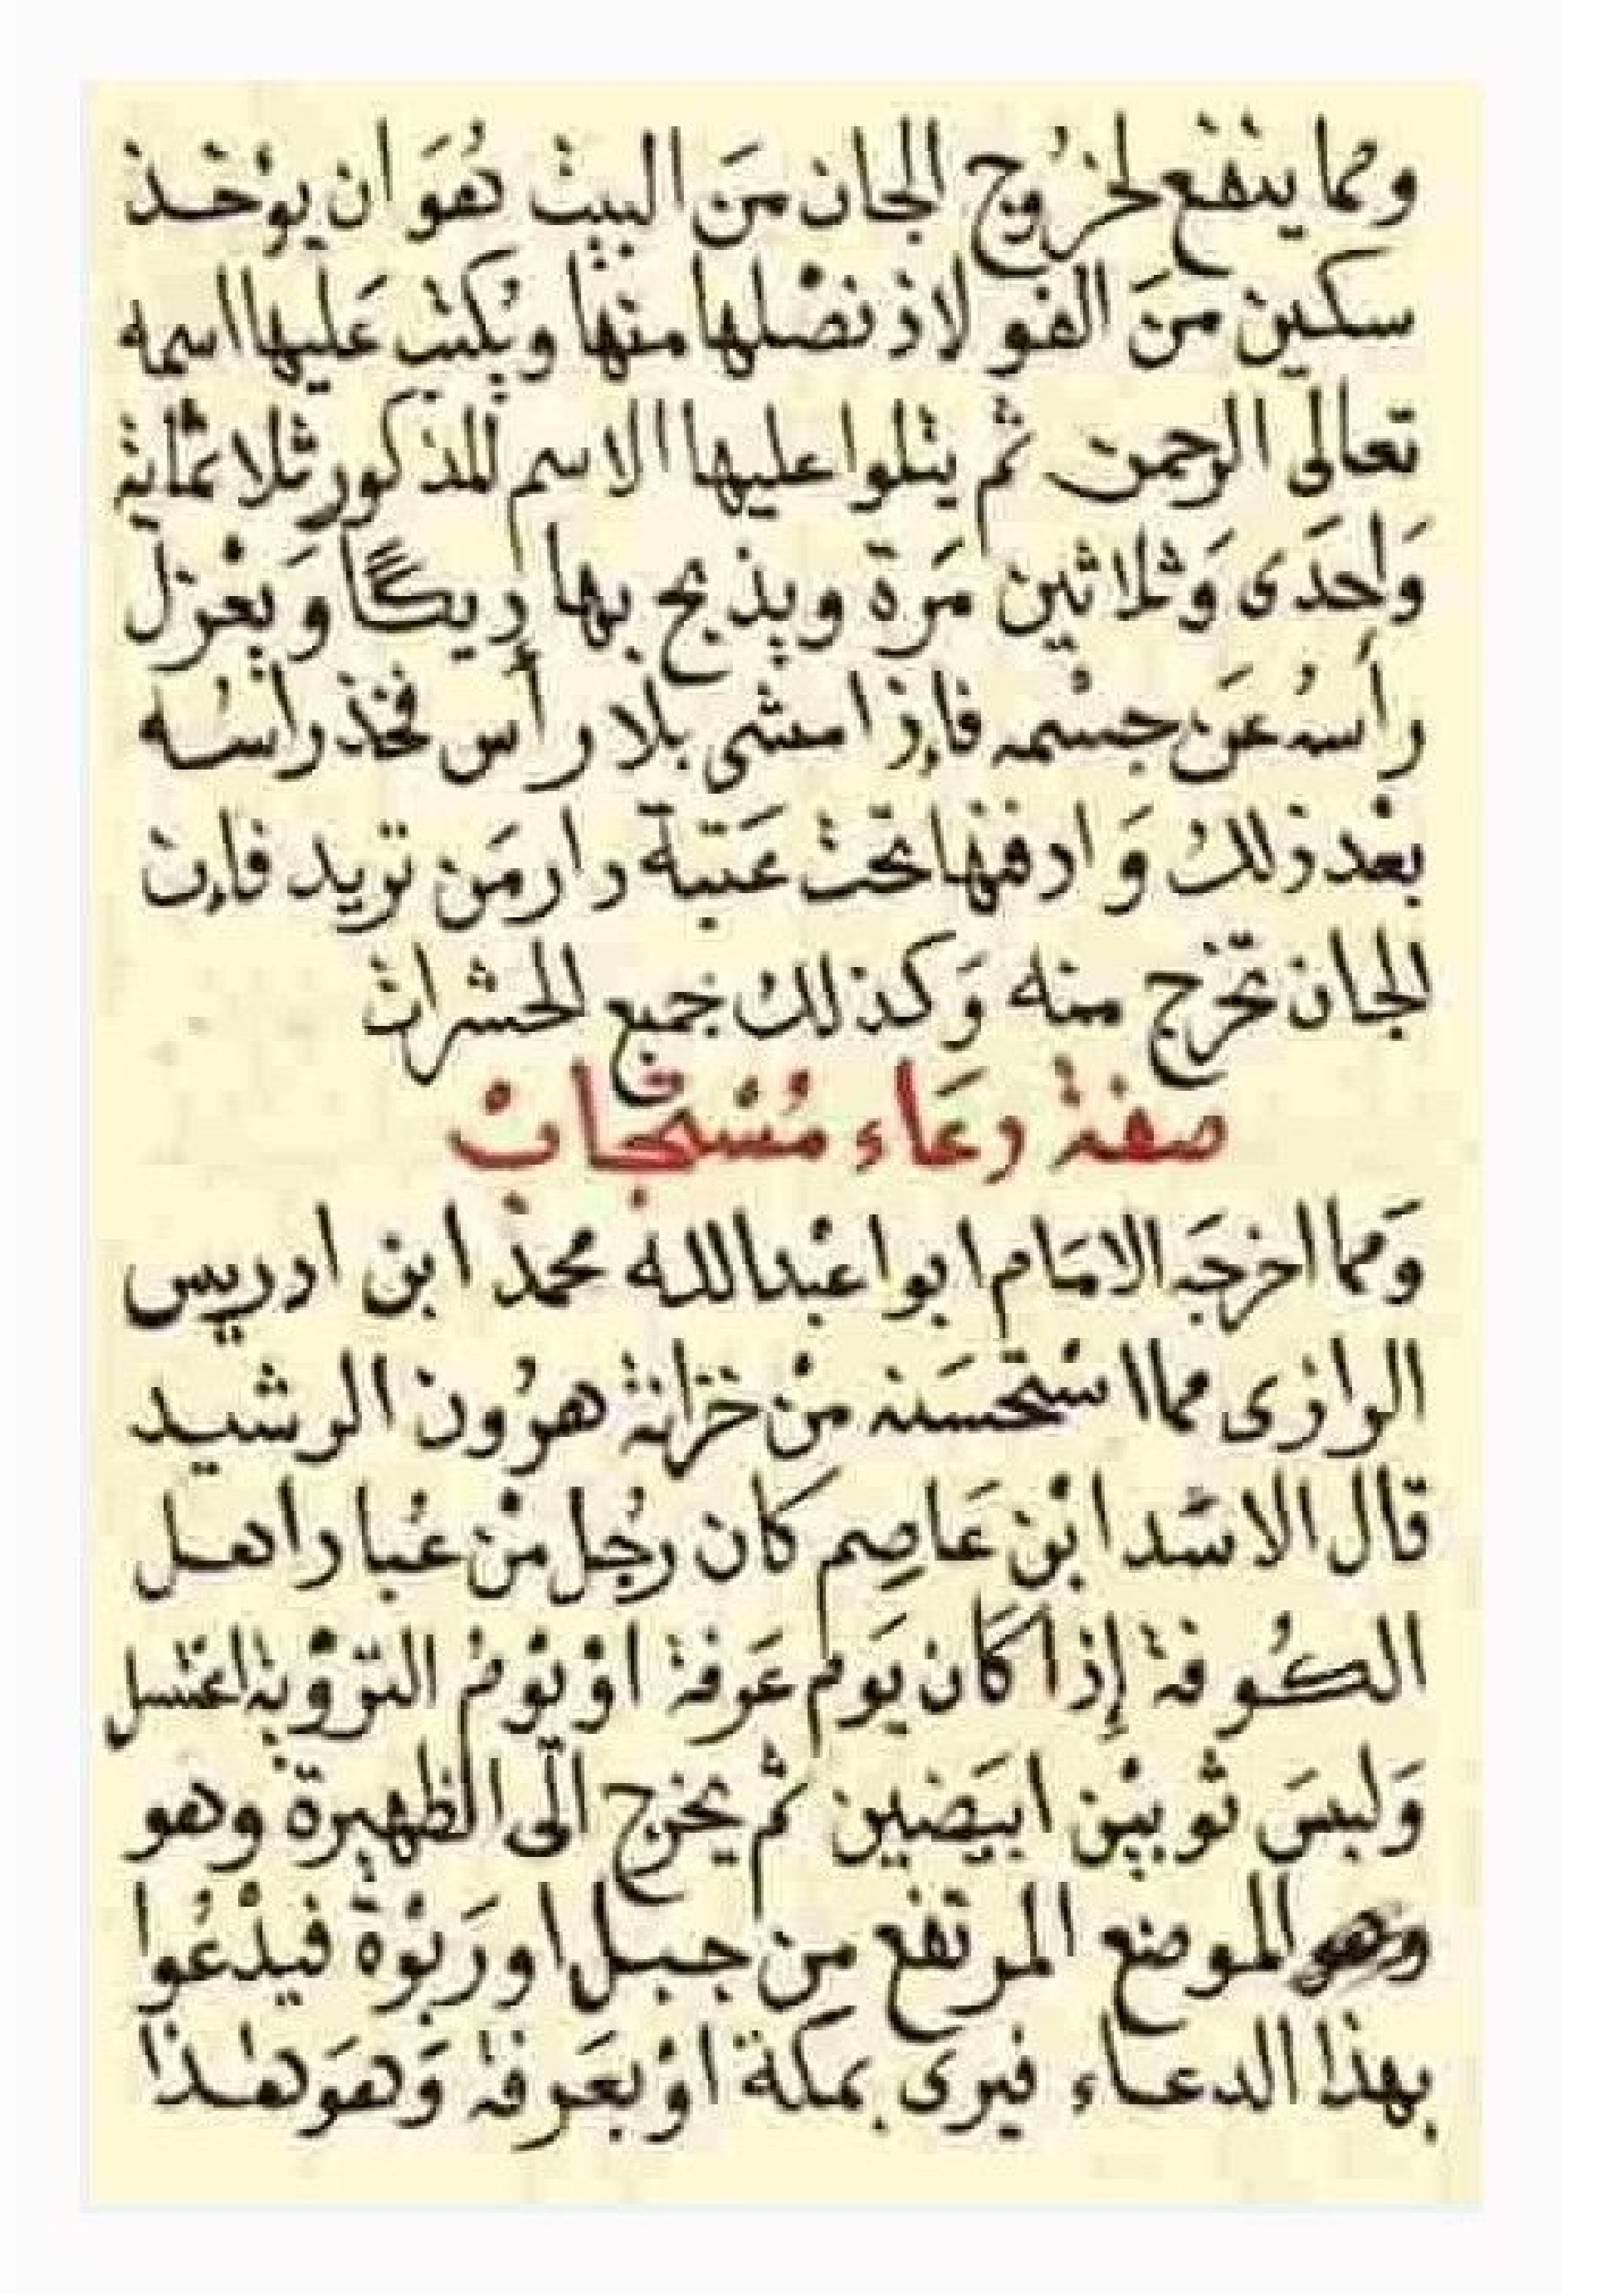 ومما ينفع لخرُوج الجان مَن البيت هُوَ ان يوْخذ
سكين مَن الفولاذ نصْلها منها ويُكتب عَليها اسمه
تعالى الرحمن ثم يتلوا عليها الاسم المذكور ثلاثمائة
وَاحدَى وَثلاثين مَرة ويذبح بها ديكًا وَيعْزل
رأسُه عَن جسْمه فإذا مشى بلا رأس فخذ راسُه
بعْد ذلكُ وَادفنها تحْت عَتبة دار مَن تريد فإن
الجان تخرج منه وَكذلكُ جميع الحشرات
صفة دعَاء مُسْتجابْ
وَمما اخرجَه الامَام ابوا عبْدالله محمد ابن ادريس
الرازى مما اسْتحسَنه منْ خزانة هرُون الرشيد
قال الاسَد ابْن عَاصِم كان رجُل منْ عُباد اهل
الكُوفة إذا كان يَوم عَرفة اوْ يوْم الترْوية اغتسل
وَلبسَ ثوبيْن ابيَضين ثم يخرج الَى الظهيرة وهو
وهو الموضع المرتفع من جبل او رَبْوة فيدْعُوا
بهذا الدعاء فيرى بمكة اوْ بعَرفة وَهوَ هٰذا